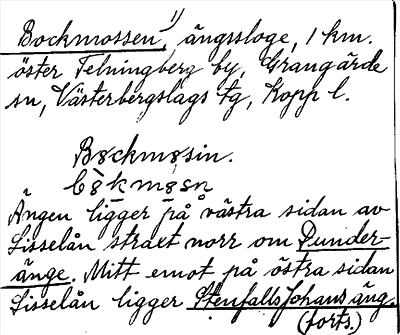 Bockmossen,¹⁾ ängssloge, 1 km.
öster Telningberg by, Grangärde
sn, Västerbergslags tg, Kopp l.
Bȣckmȣsin.
bȣ̀kmȣsn
Ängen ligger på västra sidan av
Sisselån straxt norr om Dunder-
änge. Mitt emot på östra sidan
Sisselån ligger Stenfalls Johans äng.
(forts.)